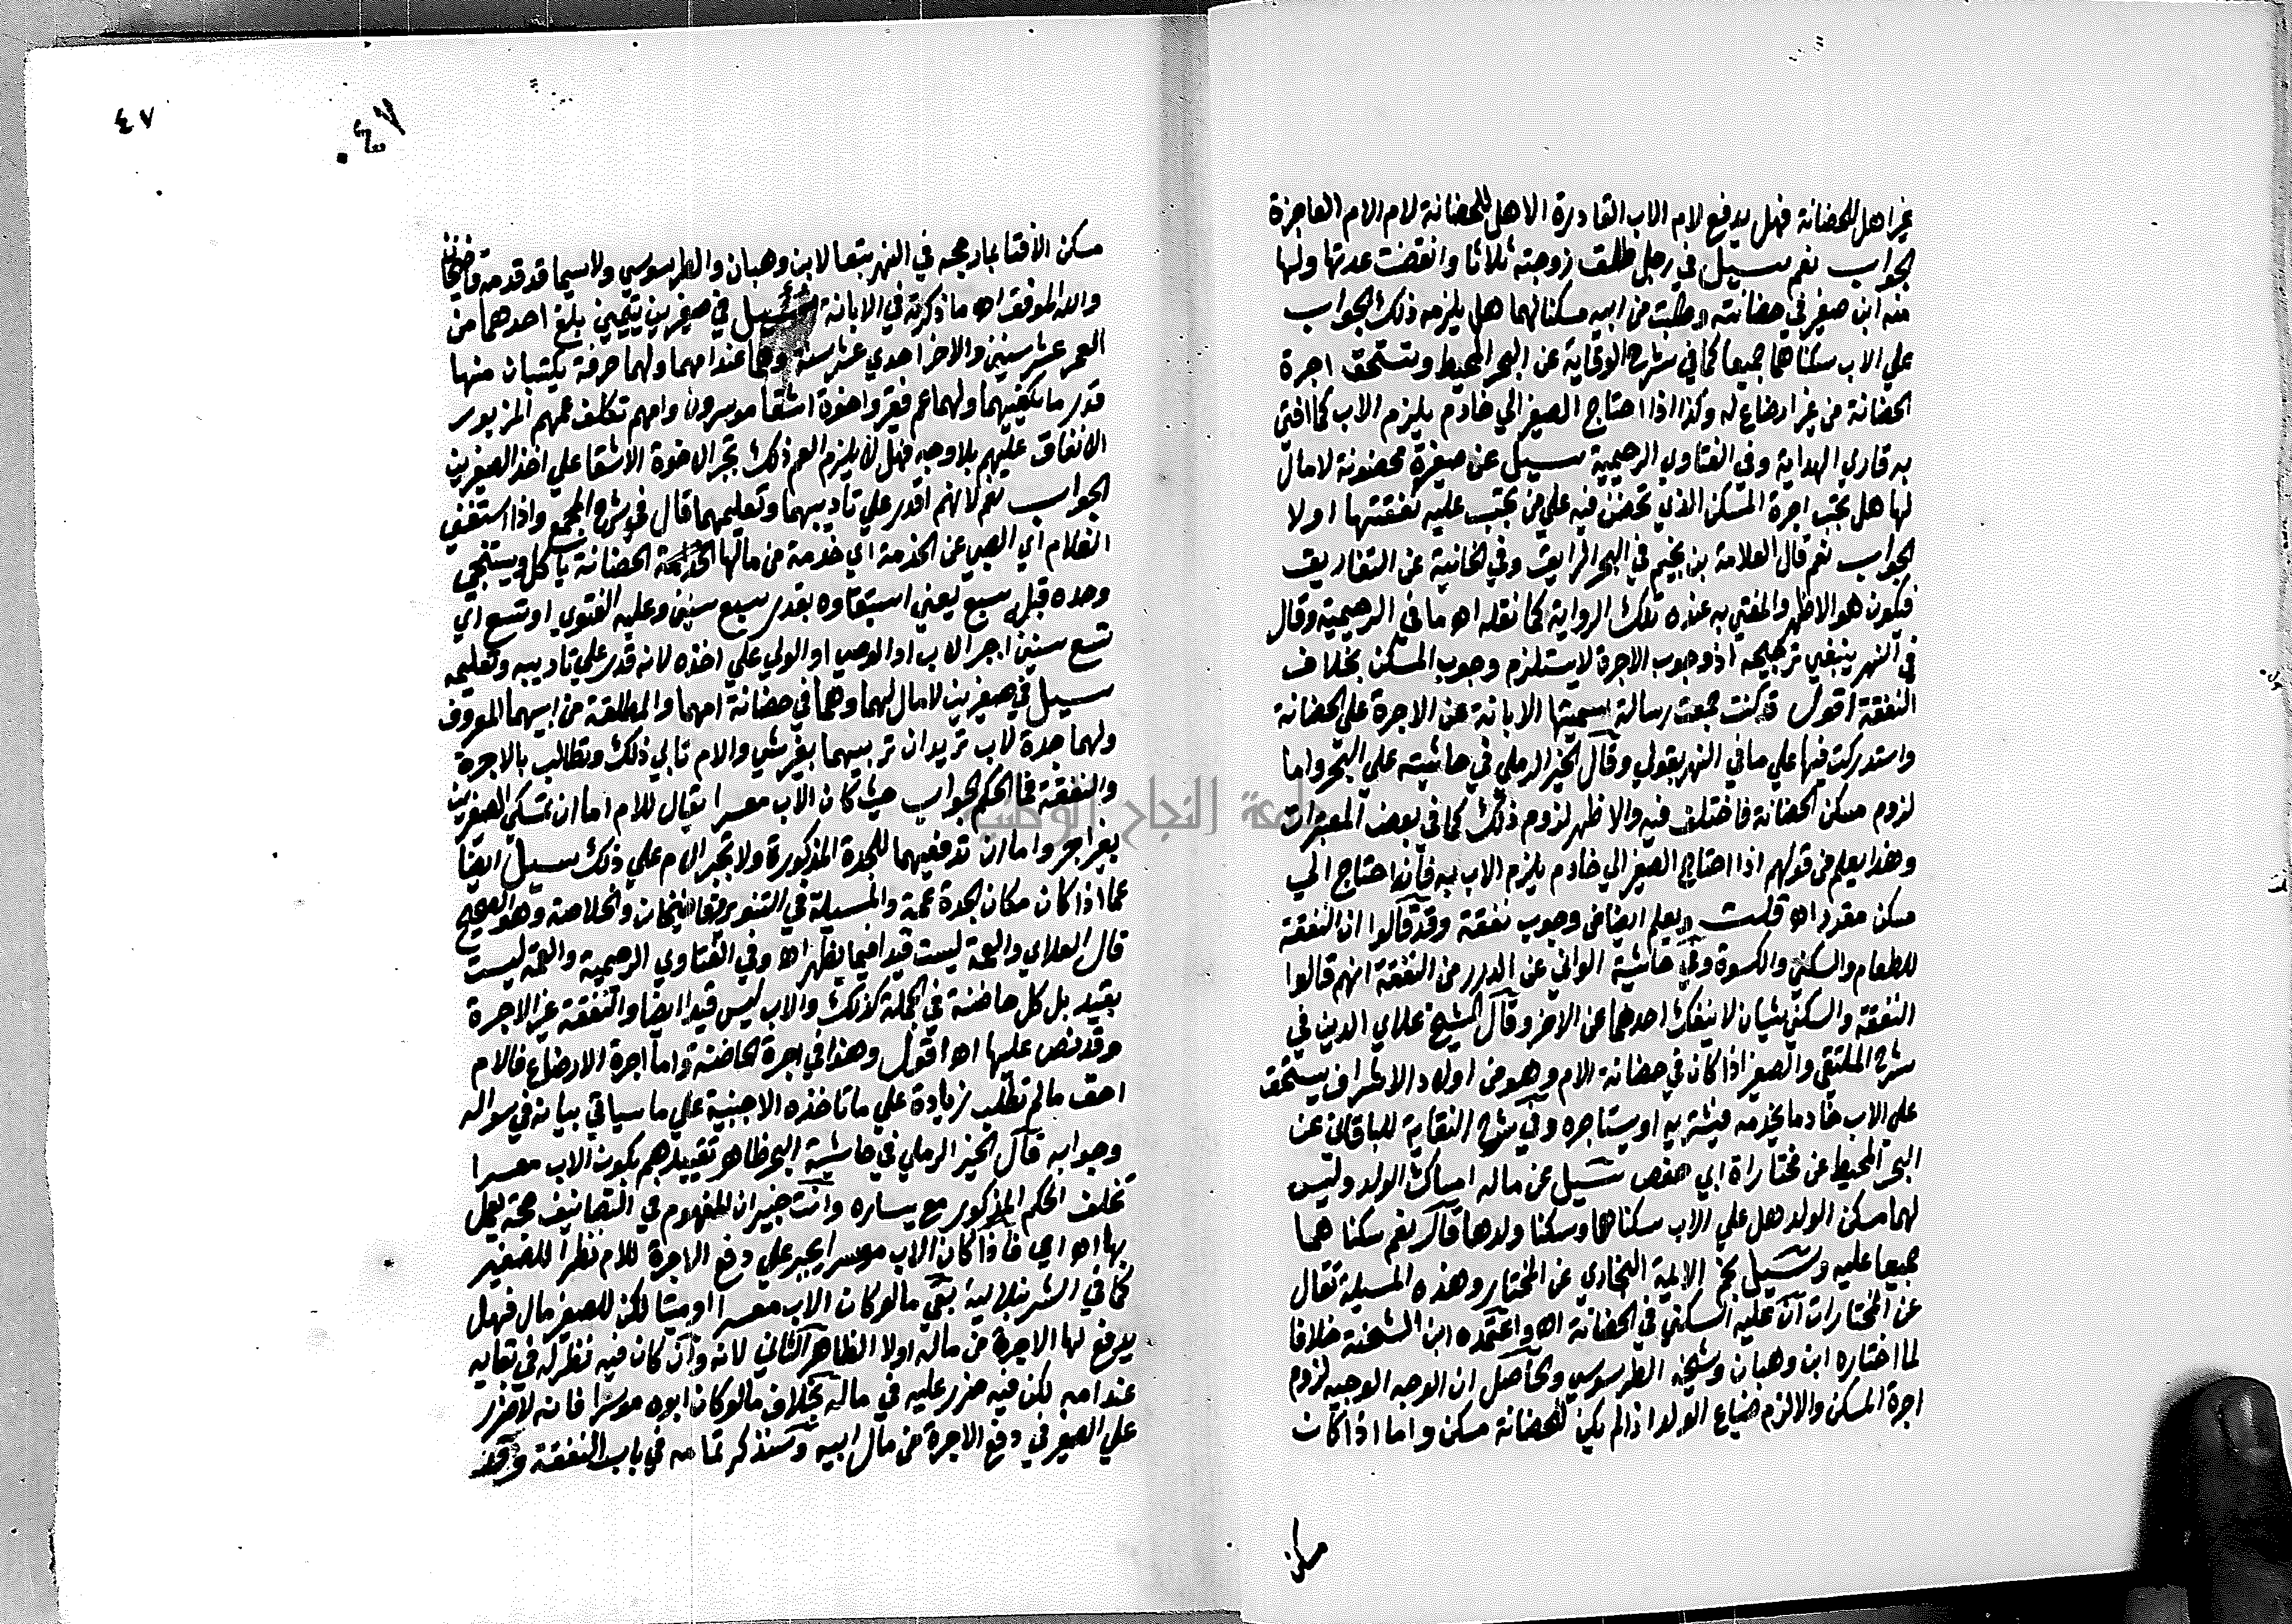 غير اهل للحضانة فهل يدفع لام الاب القادرة الاهل للحضانة لام الام العاجزة
الجواب نعم سيل في رجل طلق زوجته ثلاثا وانقضت عدتها ولها
منه ابن صغير في حضانته وطلبت من ابيه مسكنا لهما هل يلزمه ذلك الجواب
علي الاب سكناهما جميعا كما في شرح الوقاية عن البحر المحيط وتستحق اجرة
الحضانة من غير ارضاع له وكذا اذا احتاج الصغير الي خادم يلزم الاب كما افتي
به قاري الهداية وفي الفتاوي الرحيمية سيل عن صغيرة محضونة لا مال
لها هل تجب اجرة المسكن الذي تحضن فيه علي من تجب عليه نفقتها اولا
الجواب نعم قال العلامة بن نجيم في البحر الرايق وفي الخانية عن التفاريق
فيكون هو الاظهر والمفتي به عنده تلك الرواية كما نقله اه ما في الرحيمية وقال
في النهر ينبغي ترجيحه اذ وجوب الاجرة لا يستلزم وجوب المسكن بخلاف
النفقة اقول قد كنت جمعت رسالة سميتها الابانة عن الاجرة علي الحضانة
واستدركت فيها علي ما في النهر بقولي وقال الخير الرملي في حاشيته علي البحر واما
لزوم مسكن الحضانة فاختلف فيه والاظهر لزوم ذلك كما في بعض المعتبرات
وهذا يعلم من قولهم اذا احتاج الصغير الي خادم يلزم الاب به فانه احتاج الي
مسكن مقرر اه قلت ويعلم ايضا من وجوب نفقة وقد قالوا ان النفقة
للطعام والسكني والكسوة وفي حاشية الواني عن الدرر من النفقة انهم قالوا
النفقة والسكني شيان لا ينفك احدهما عن الاخر وقال الشيخ علاي الدين في
شرح الملتقي والصغير اذا كان في حضانة الام وهو من اولاد الاشراف يستحق
علي الاب خادما يخدمه فيشتريه او يستاجره وفي شرح النقاية للباقاني عن
البحر المحيط عن مختاراة ابي حفص سيل عن ماله امساك الولد وليس
لها مسكن الولد هل علي الاب سكناها وسكنا ولدها قال نعم سكناهما
جميعا عليه وسيل نجم الايمة البخاري عن المختار وهذه المسيلة فقال
عن المختارات ان عليه السكني في الحضانة اه واعتمده ابن الشحنة خلافا
لما اختاره ابن وهبان وشيخه الطرسوسي والحاصل ان الوجه الوجيه لزوم
اجرة المسكن والالزم ضياع الولد اذا لم يكن للحضانة مسكن واما اذا كان
مسكن
٤٧
٠٤٧
مسكن الافتا بما رجحه في النهر تبعا لابن وهبان والطرسوسي ولاسيما قد قدمه قاضيخان
والله الموفق اه ما ذكرته في الابانة سيل في صغيرين يتيمين بلغ احدهما من
العمر عشر سنين والاخر احدي عشر سنة وهما عند امهما ولهما حرفة يكتسبان منها
قدر ما يكفيهما ولهما عم فقير واخوة اشقا موسرون وامهم تكلف عمهم المزبور
الانفاق عليهم بلا وجه فهل لا يلزم العم ذلك تجبر الاخوة الاشقا علي اخذ الصغيرين
الجواب نعم لانهم اقدر علي تاديبهما وتعليمهما قال في شرح المجمع واذا استغني
الغلام اي الصبي عن الخدمة اي خدمة من مالها الحضانة ياكل ويستنجي
وحده قبل سبع يعني استغناوه بقدر سبع سنين وعليه الفتوي او تسع اي
تسع سنين اجبر الاب او الوصي او الولي علي اخذه لانه قدر علي تاديبه وتعليمه
سيل في صغيرين لا مال لهما وهما في حضانة امهما والمطلقة من ابيهما المعروف
ولهما جدة لاب تريد ان تربيهما بغير شي والام تابي ذلك وتطالب بالاجرة
والنفقة فما الحكم الجواب حيث كان الاب معسرا يقال للام اما ان تمسكي الصغيرين
بغير اجر واما ان تدفعيهما للجدة المذكورة ولا تجبر الام علي ذلك سيل ايضا
عما اذا كان مكان الجدة عمة والمسيلة في التنوير وقاضيخان والخلاصة وهو الصحيح
قال العلاي والعمة ليست قيدا فيما يظهر اه وفي الفتاوي الرحيمية والعمة ليست
بقيد بل كل حاضنة في الجملة كذلك والاب ليس قيدا ايضا والنفقة غير الاجرة
وقد نص عليها اه اقول وهذا في اجرة الحاضنة واما اجرة الارضاع فالام
احق ما لم تطلب زيادة علي ما تاخذه الاجنبية علي ما سياتي بيانه في سواله
وجوابه قال الخير الرملي في حاشية البحر ظاهر تقييدهم بكون الاب معسرا
تخلف الحكم المذكور مع يساره وانت خبير ان المفهوم في التصانيف حجة يعمل
بها اه اي فاذا كان الاب موسرا يجبر علي دفع الاجرة للام نظرا للصغير
كما في الشرنبلالية بقي ما لو كان الاب معسرا او ميتا لكن للصغير مال فهل
يدفع لها الاجرة من ماله اولا الظاهر الثاني لانه وان كان فيه نظر له في بقايه
عند امه لكن فيه ضرر عليه في ماله بخلاف ما لو كان ابوه موسرا فانه لا ضرر
علي الصغير في دفع الاجرة من مال ابيه وسنذكر تمامه في باب النفقة وقد
جامعة النجاح الوطنية